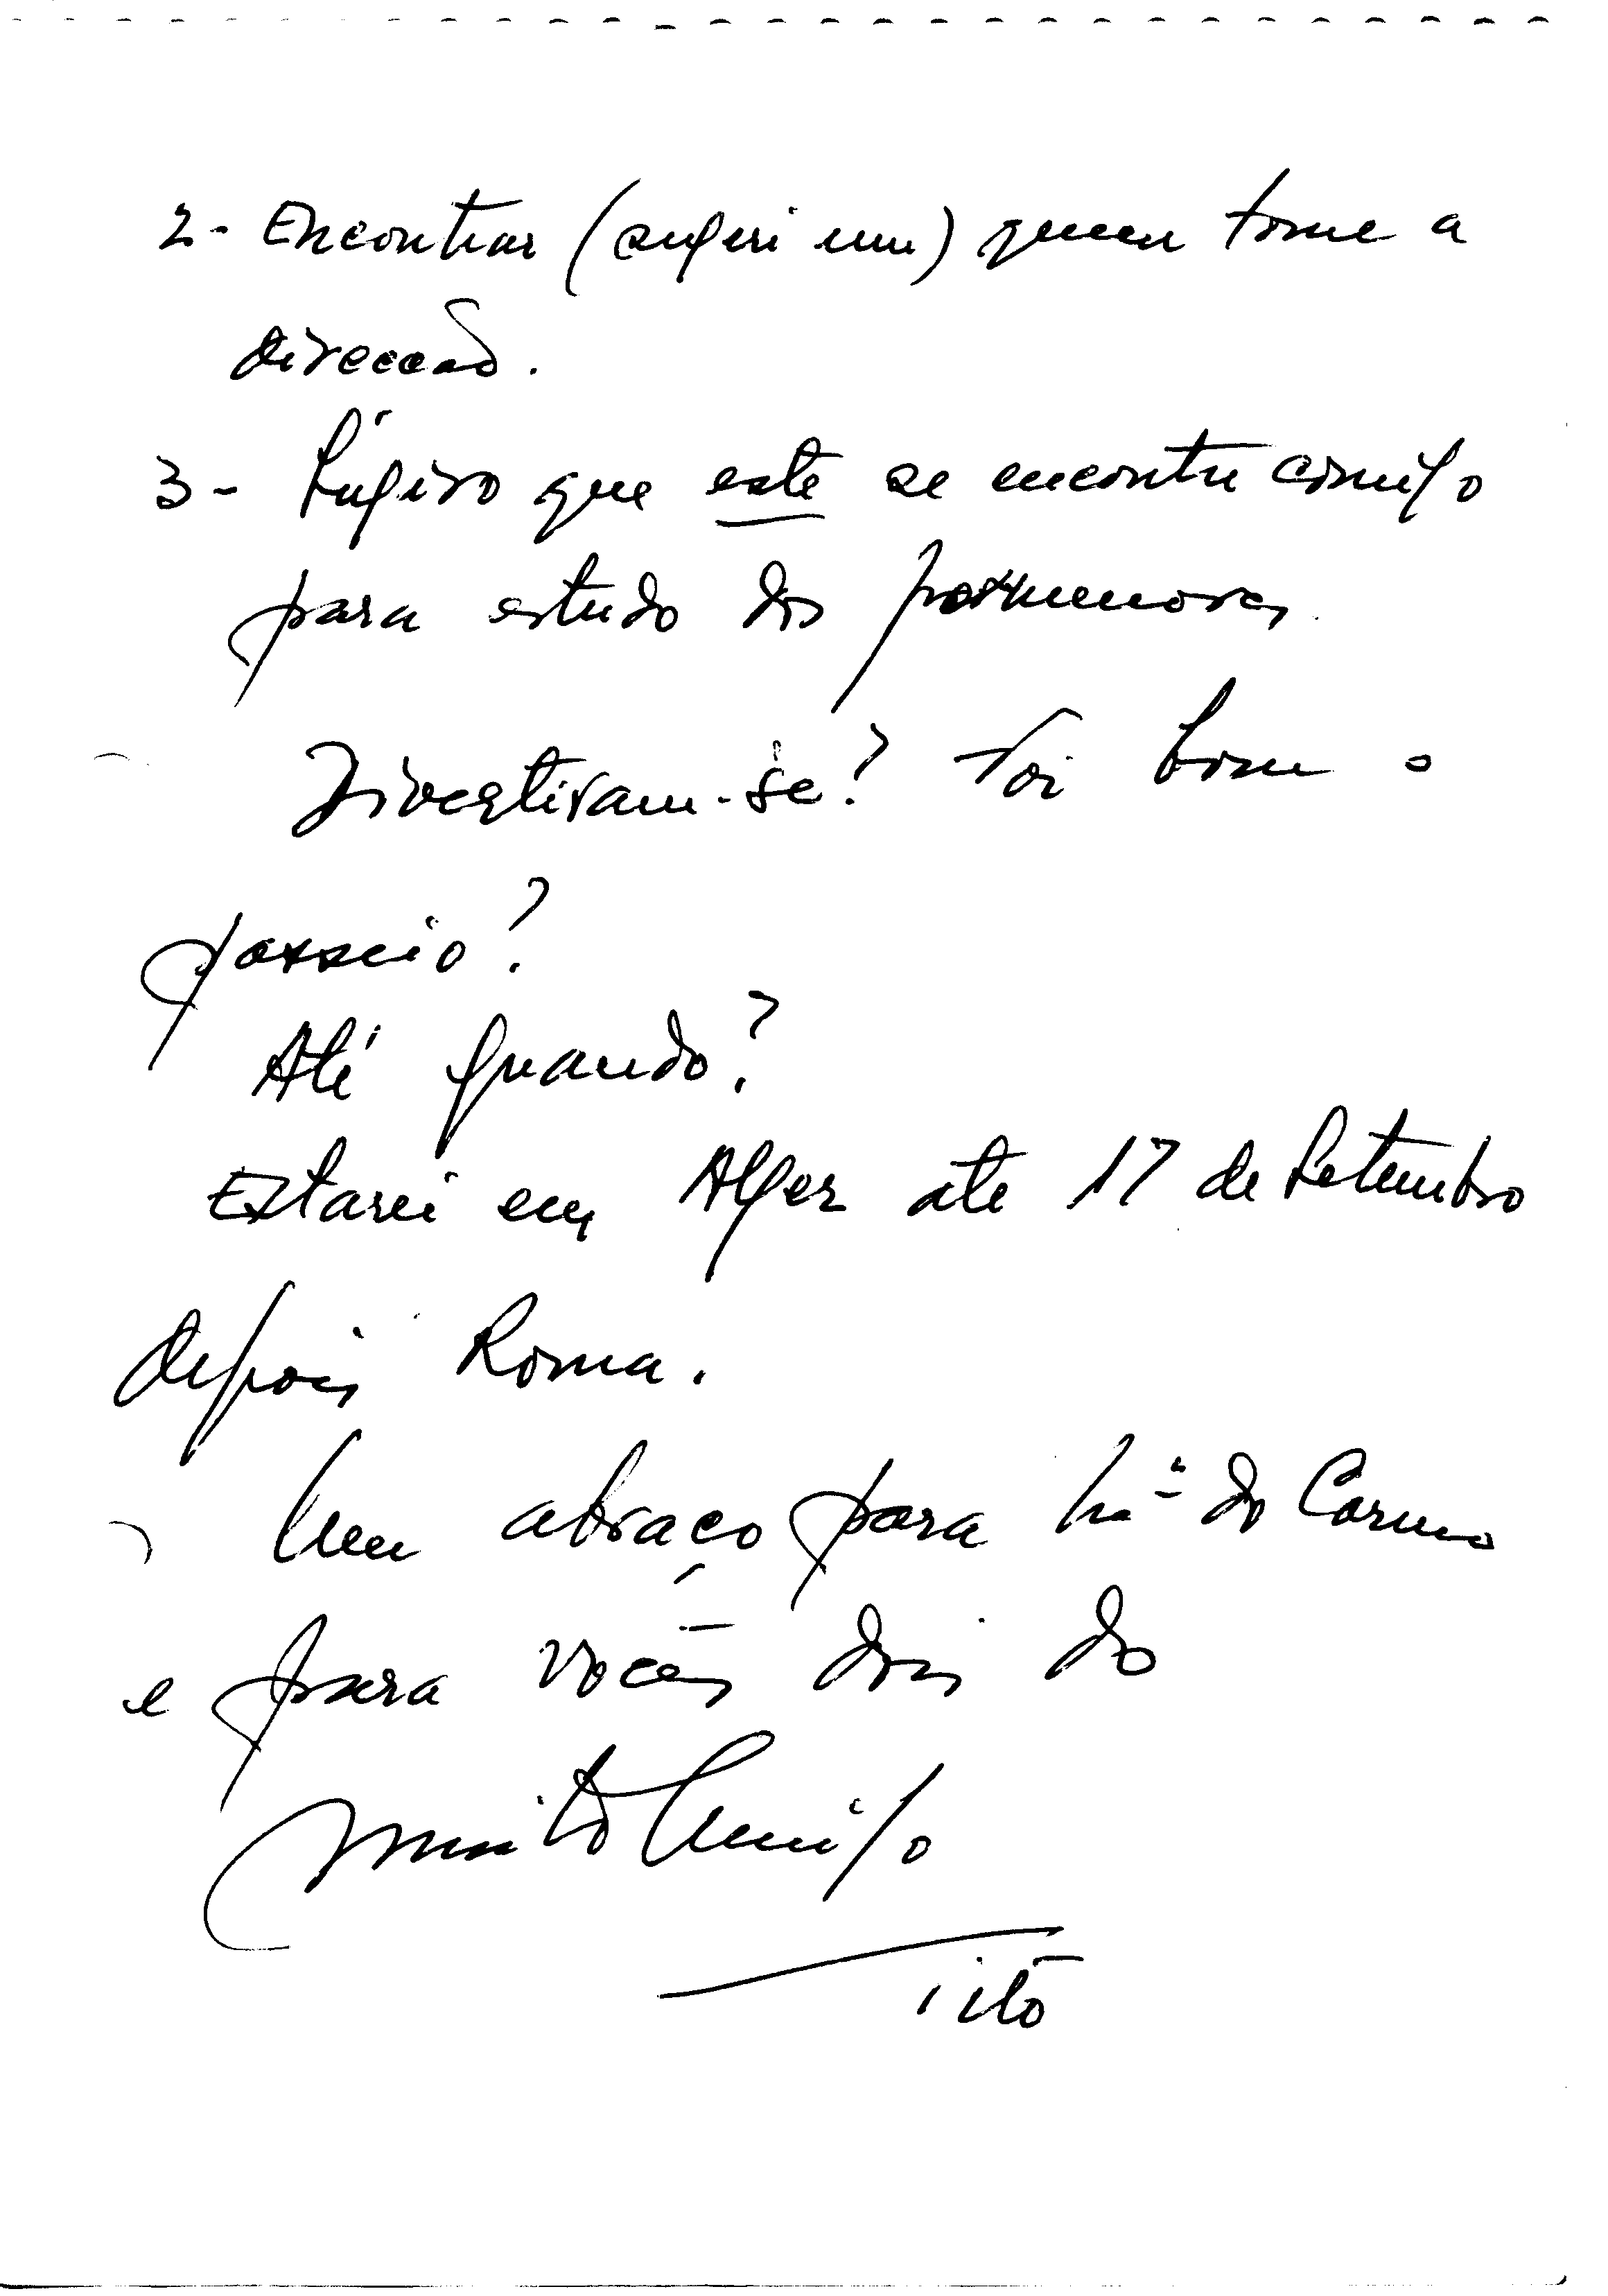 2- Encontrar (sugeri um) quem tome a
direccão.
3- Sugiro que este se encontre comigo
para estudo dos pormenores.
Divertiram-se? Foi bom o
passeio?
Até quando?
Estarei em Alger até 17 de Setembro
depois Roma.
Um abraço para Mª do Carmo
e para vocês dois do
muito amigo
Titô